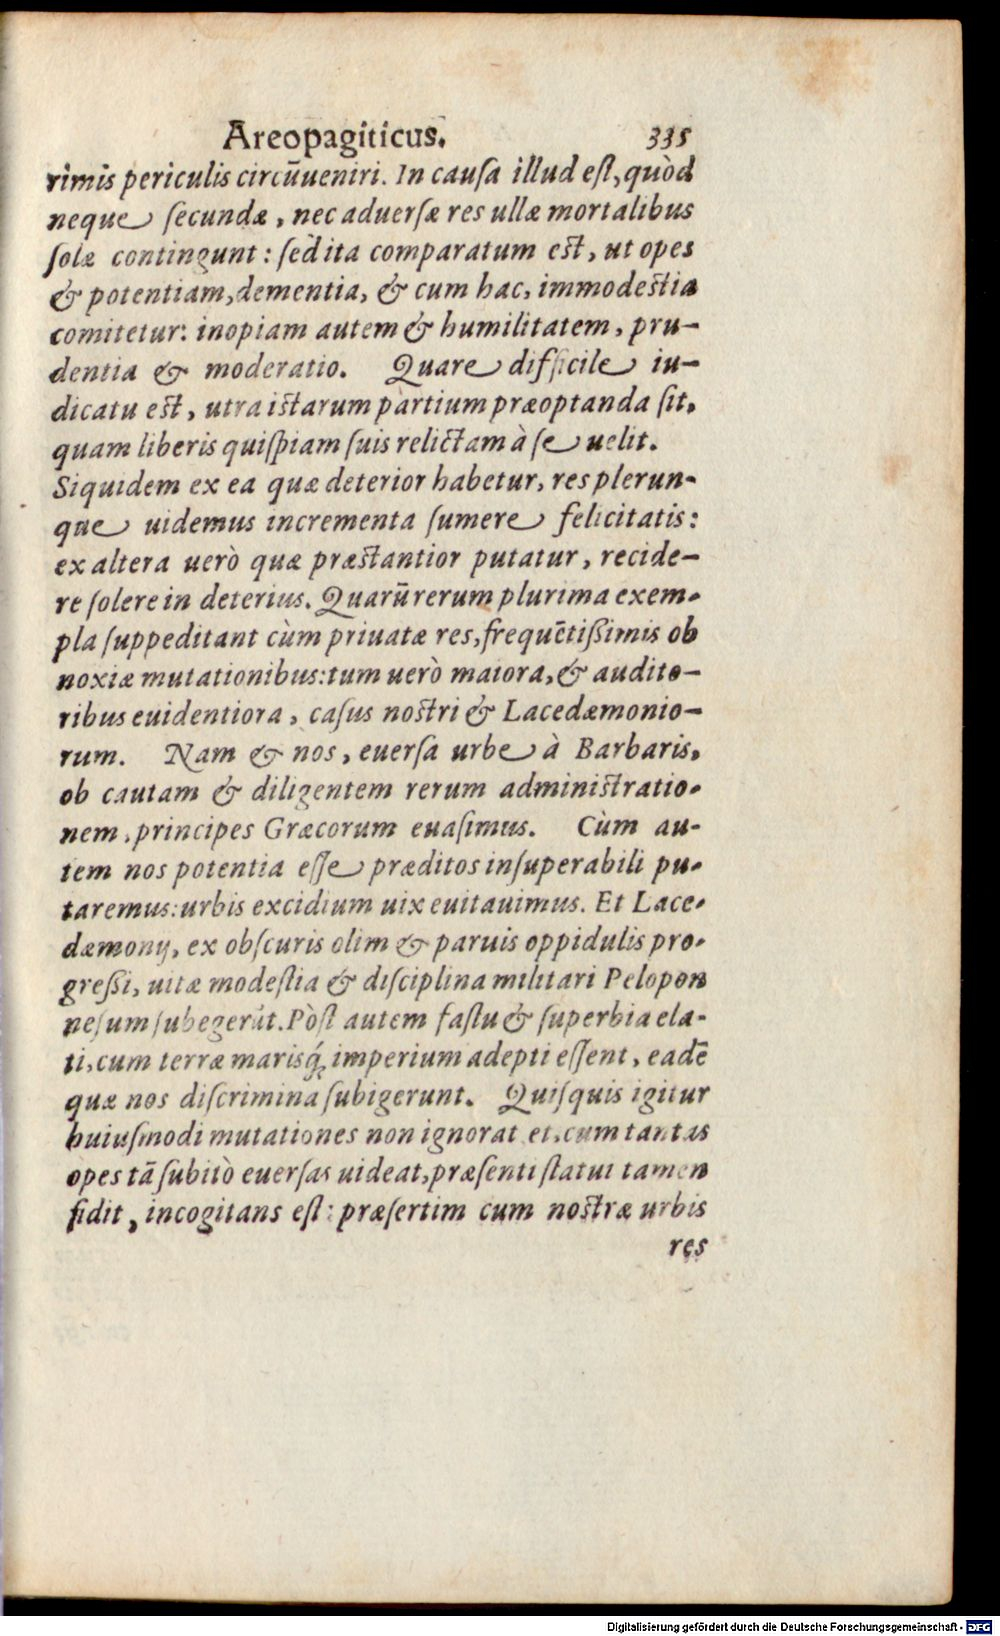 Areopagiticus. 335
rimis periculis circũueniri. In cauſa illud eſt, quòd
neque ſecundæ, nec aduerſæ res ullæ mortalibus
ſolæ contingunt: ſed ita comparatum est, ut opes
& potentiam, dementia, & cum hac, immodestia
comitetur: inopiam autem & humilitatem, pru-
dentia & moderatio. Quare difficile iu-
dicatu est, utra istarum partium præoptanda ſit,
quam liberis quiſpiam ſuis relictam à ſe uelit.
Siquidem ex ea quæ deterior habetur, res plerun-
que uidemus incrementa ſumere felicitatis:
ex altera uerò quæ præstantior putatur, recide-
re ſolere in deterius. Quarũ rerum plurima exem-
pla ſuppeditant cùm priuatæ res, frequẽtißimis ob
noxiæ mutationibus: tum uerò maiora, & audito-
ribus euidentiora, caſus nostri & Lacedæmonio-
rum. Nam & nos, euerſa urbe à Barbaris,
ob cautam & diligentem rerum administratio-
nem, principes Græcorum euaſimus. Cùm au-
tem nos potentia eſſe præditos inſuperabili pu-
taremus: urbis excidium uix euitauimus. Et Lace-
dæmonij, ex obſcuris olim & paruis oppidulis pro-
greßi, uitæ modeſtia & diſciplina militari Pelopon
neſum ſubegerũt. Pòſt autem faſtu & ſuperbia ela-
ti, cum terræ marisq́; imperium adepti eſſent, eadẽ
quæ nos diſcrimina ſubigerunt. Quiſquis igitur
huiuſmodi mutationes non ignorat et, cum tantas
opes tã ſubitò euerſas uideat, præſenti ſtatui tamen
fidit, incogitans eſt: præſertim cum nostræ urbis
res
Digitalisierung gefördert durch die Deutsche Forschungsgemeinschaft - DFG